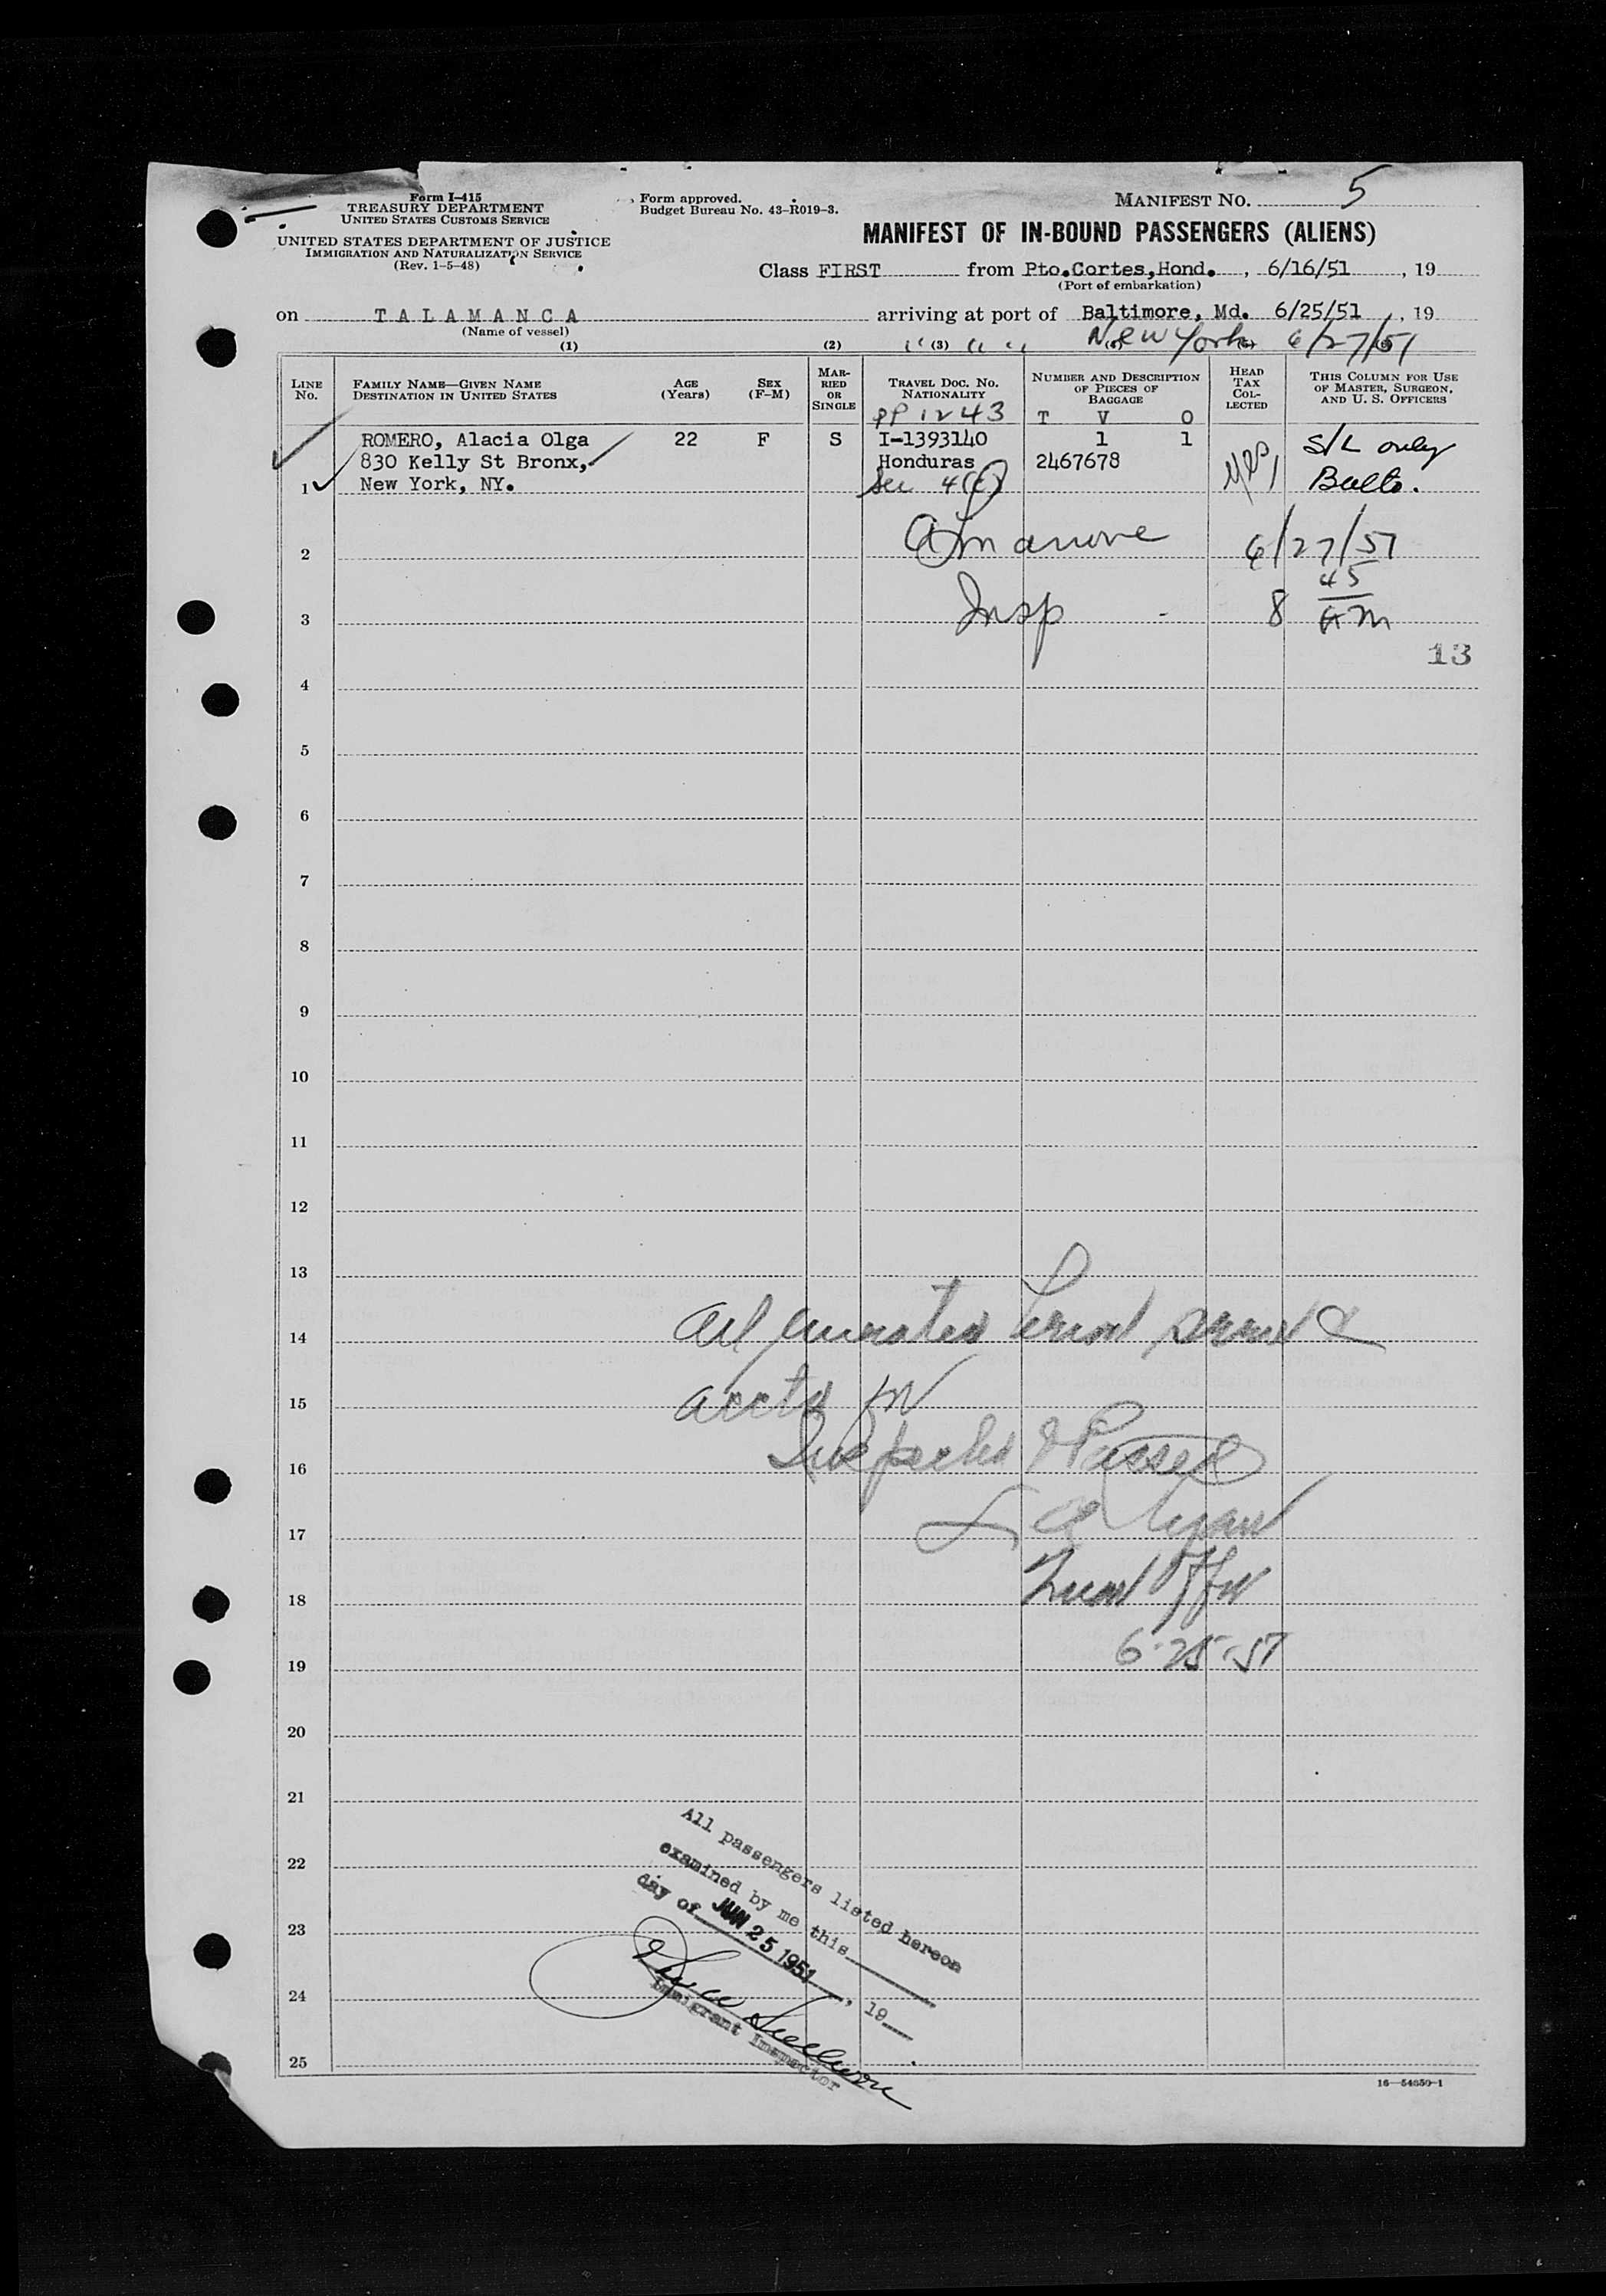 Form I-415
TREASURY DEPARTMENT
UNITED STATES CUSTOMS SERVICE
UNITED STATES DEPARTMENT OF JUSTICE
IMMIGRATION AND NATURALIZATION SERVICE
(Rev. 1-5-48)
Form approved.
Budget Bureau No. 43-R019-3.
MANIFEST NO. 5
MANIFEST OF IN-BOUND PASSENGERS (ALIENS)
Class FIRST from Pto.Cortes,Hond., 6/16/51, 19
(Port of embarkation)
on TALAMANCA arriving at port of Baltimore, Md. 6/25/51, 19
(Name of vessel)
" " " " New York 6/27/51
(1) (2) (3)
LINE No.
FAMILY NAME—GIVEN NAME
DESTINATION IN UNITED STATES
AGE (Years)
SEX (F-M)
MARRIED OR SINGLE
TRAVEL DOC. NO.
NATIONALITY
NUMBER AND DESCRIPTION OF PIECES OF BAGGAGE
T V O
HEAD TAX COLLECTED
THIS COLUMN FOR USE OF MASTER, SURGEON, AND U. S. OFFICERS
PP 1243
ROMERO, Alacia Olga 22 F S I-1393140 1 1 S/L only
830 Kelly St Bronx, Honduras 2467678 Yes
1 New York, NY. Sec 4(c) Balto.
2 6/27/51
45
3 Insp - 8 AM
13
4
5
6
7
8
9
10
11
12
13
14
15
Inspected & Passed
16
17
18
6-25-51
19
20
21
All passengers listed hereon
22
examined by me this
day of JUN 25 1951, 19
23
24
Immigrant Inspector
25
16—54850-1